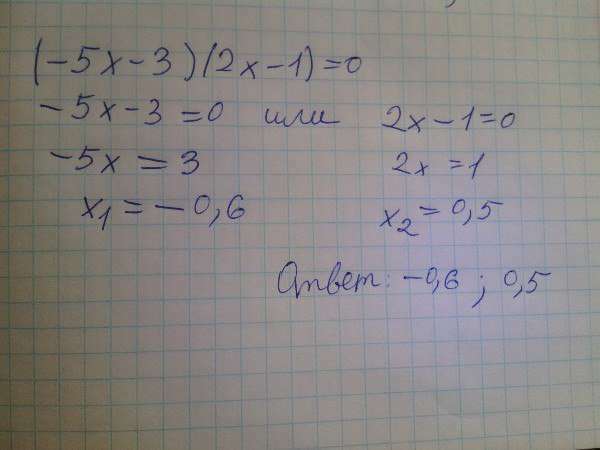 (-5x-3)(2x-1)=0
-5x-3=0 или 2x-1=0
-5x=3 2x=1
x₁=-0,6 x₂=0,5
Ответ: -0,6; 0,5